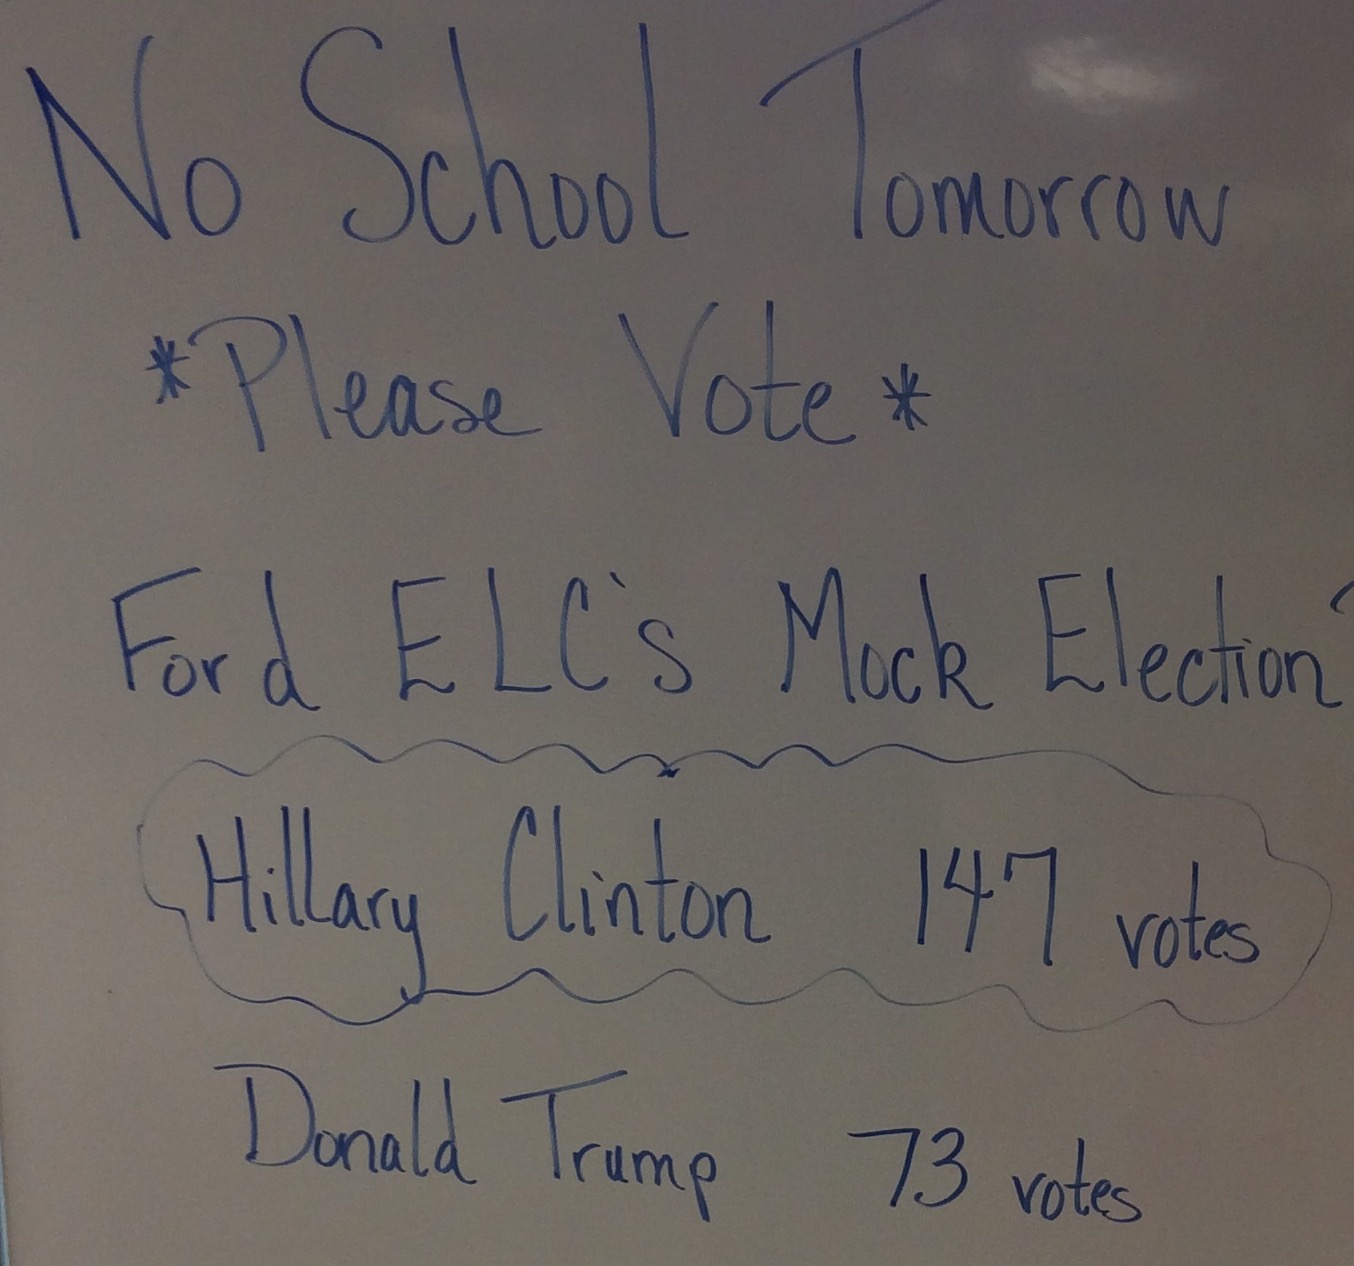 No School Tomorrow
*Please Vote*
Ford ELC's Mock Election
Hillary Clinton 147 votes
Donald Trump 73 votes